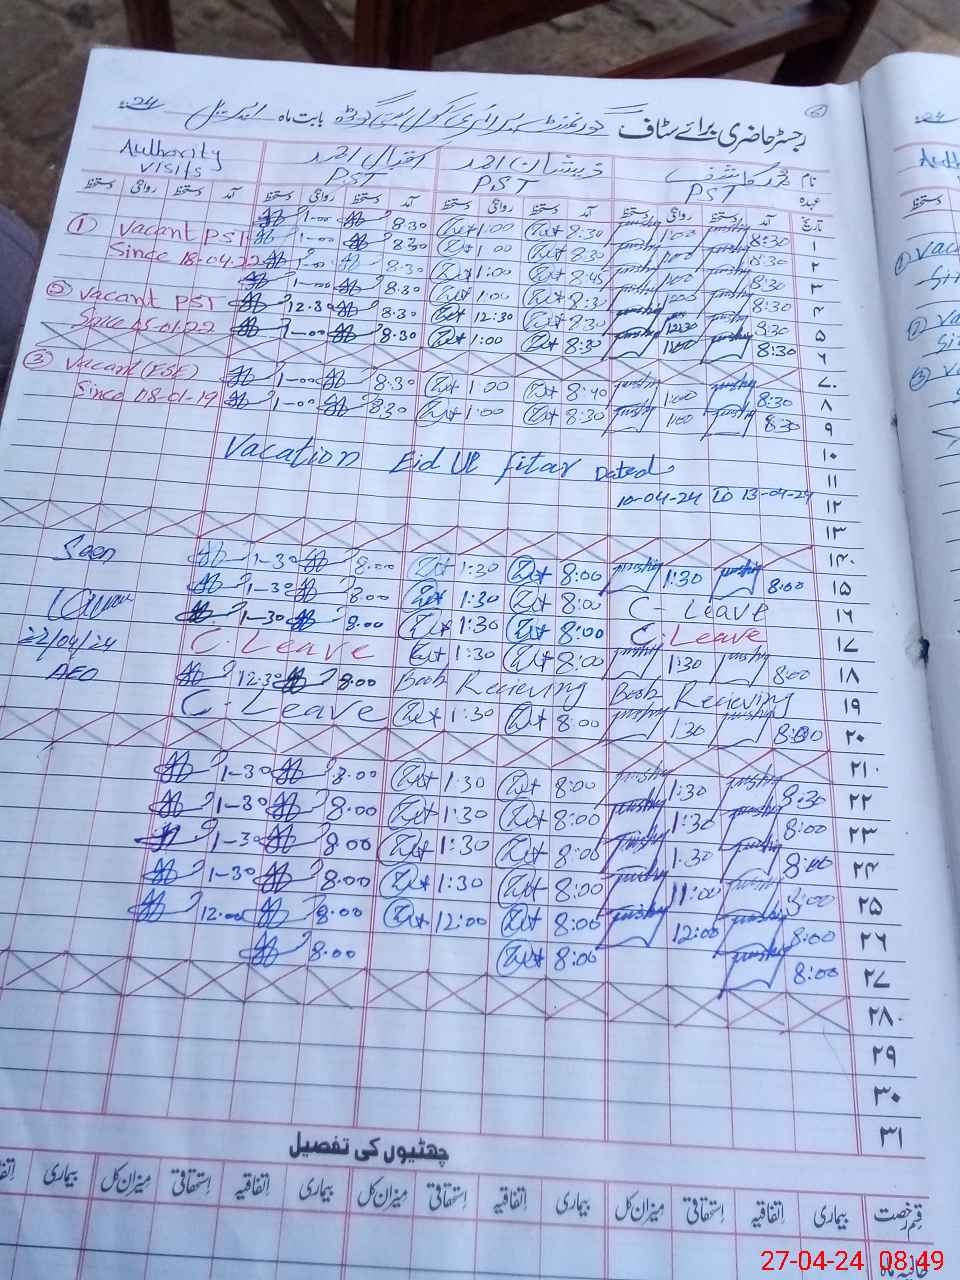 رجسٹر حاضری برائے سٹاف گورنمنٹ پرائمری سکول بابت ماہ اپریل 24
نام محمد کاشف ذیشان احمد اقبال احمد Authority visits
عہدہ PST PST PST
تاریخ آمد دستخط روانگی دستخط آمد دستخط روانگی دستخط آمد دستخط روانگی دستخط آمد دستخط روانگی دستخط
۱ 8:30 1:00 8:30 1:00 8.30 1-00
① Vacant PST
۲ 8:30 1:00 8:30 1:00 8.30 1-00
Since 18-04-22
۳ 8:30 1:00 8:45 1:00 8.30 1-00
۴ 8:30 1:00 8:30 1:00 8.30 1-00
② Vacant PST
۵ 8:30 12:30 8:30 12:30 8.30 12.30
Since 15-01-22
۶ 8:30 1:00 8:30 1:00 8.30 1-00
③ Vacant (ESE)
۷
۸ 8:30 1:00 8:40 1:00 8.30 1-00
Since 08-01-19
۹ 8:30 1:00 8:30 1:00 8.30 1-00
۱۰
Vacation Eid Ul fitar Dated
۱۱
10-04-24 To 13-04-24
۱۲
۱۳
۱۴
Seen
۱۵ 8:00 1:30 8:00 1:30 8.00 1-30
۱۶ C- Leave 8:00 1:30 8.00 1-30
۱۷ C. Leave 8:00 1:30 8.00 1-30
22/04/24
۱۸ 8:00 1:30 8:00 1:30 C. Leave
AEO
۱۹ Book Recieving Book Recieving 8.00 12.30
۲۰ 8:00 1:30 8:00 1:30 C- Leave
۲۱
۲۲ 8:30 1:30 8:00 1:30 8.00 1-30
۲۳ 8:00 1:30 8:00 1:30 8.00 1-30
۲۴ 8:00 1:30 8:00 1:30 8.00 1-30
۲۵ 8:00 11:00 8:00 1:30 8.00 1-30
۲۶ 8:00 12:00 8:00 12:00 8.00 12.00
۲۷ 8:00 8:00 8.00
۲۸
۲۹
۳۰
۳۱
چھٹیوں کی تفصیل
قسم رخصت بیماری اِتفاقیہ اِستحقاقی میزان کل بیماری اِتفاقیہ اِستحقاقی میزان کل بیماری اِتفاقیہ اِستحقاقی میزان کل بیماری
27-04-24 08:49